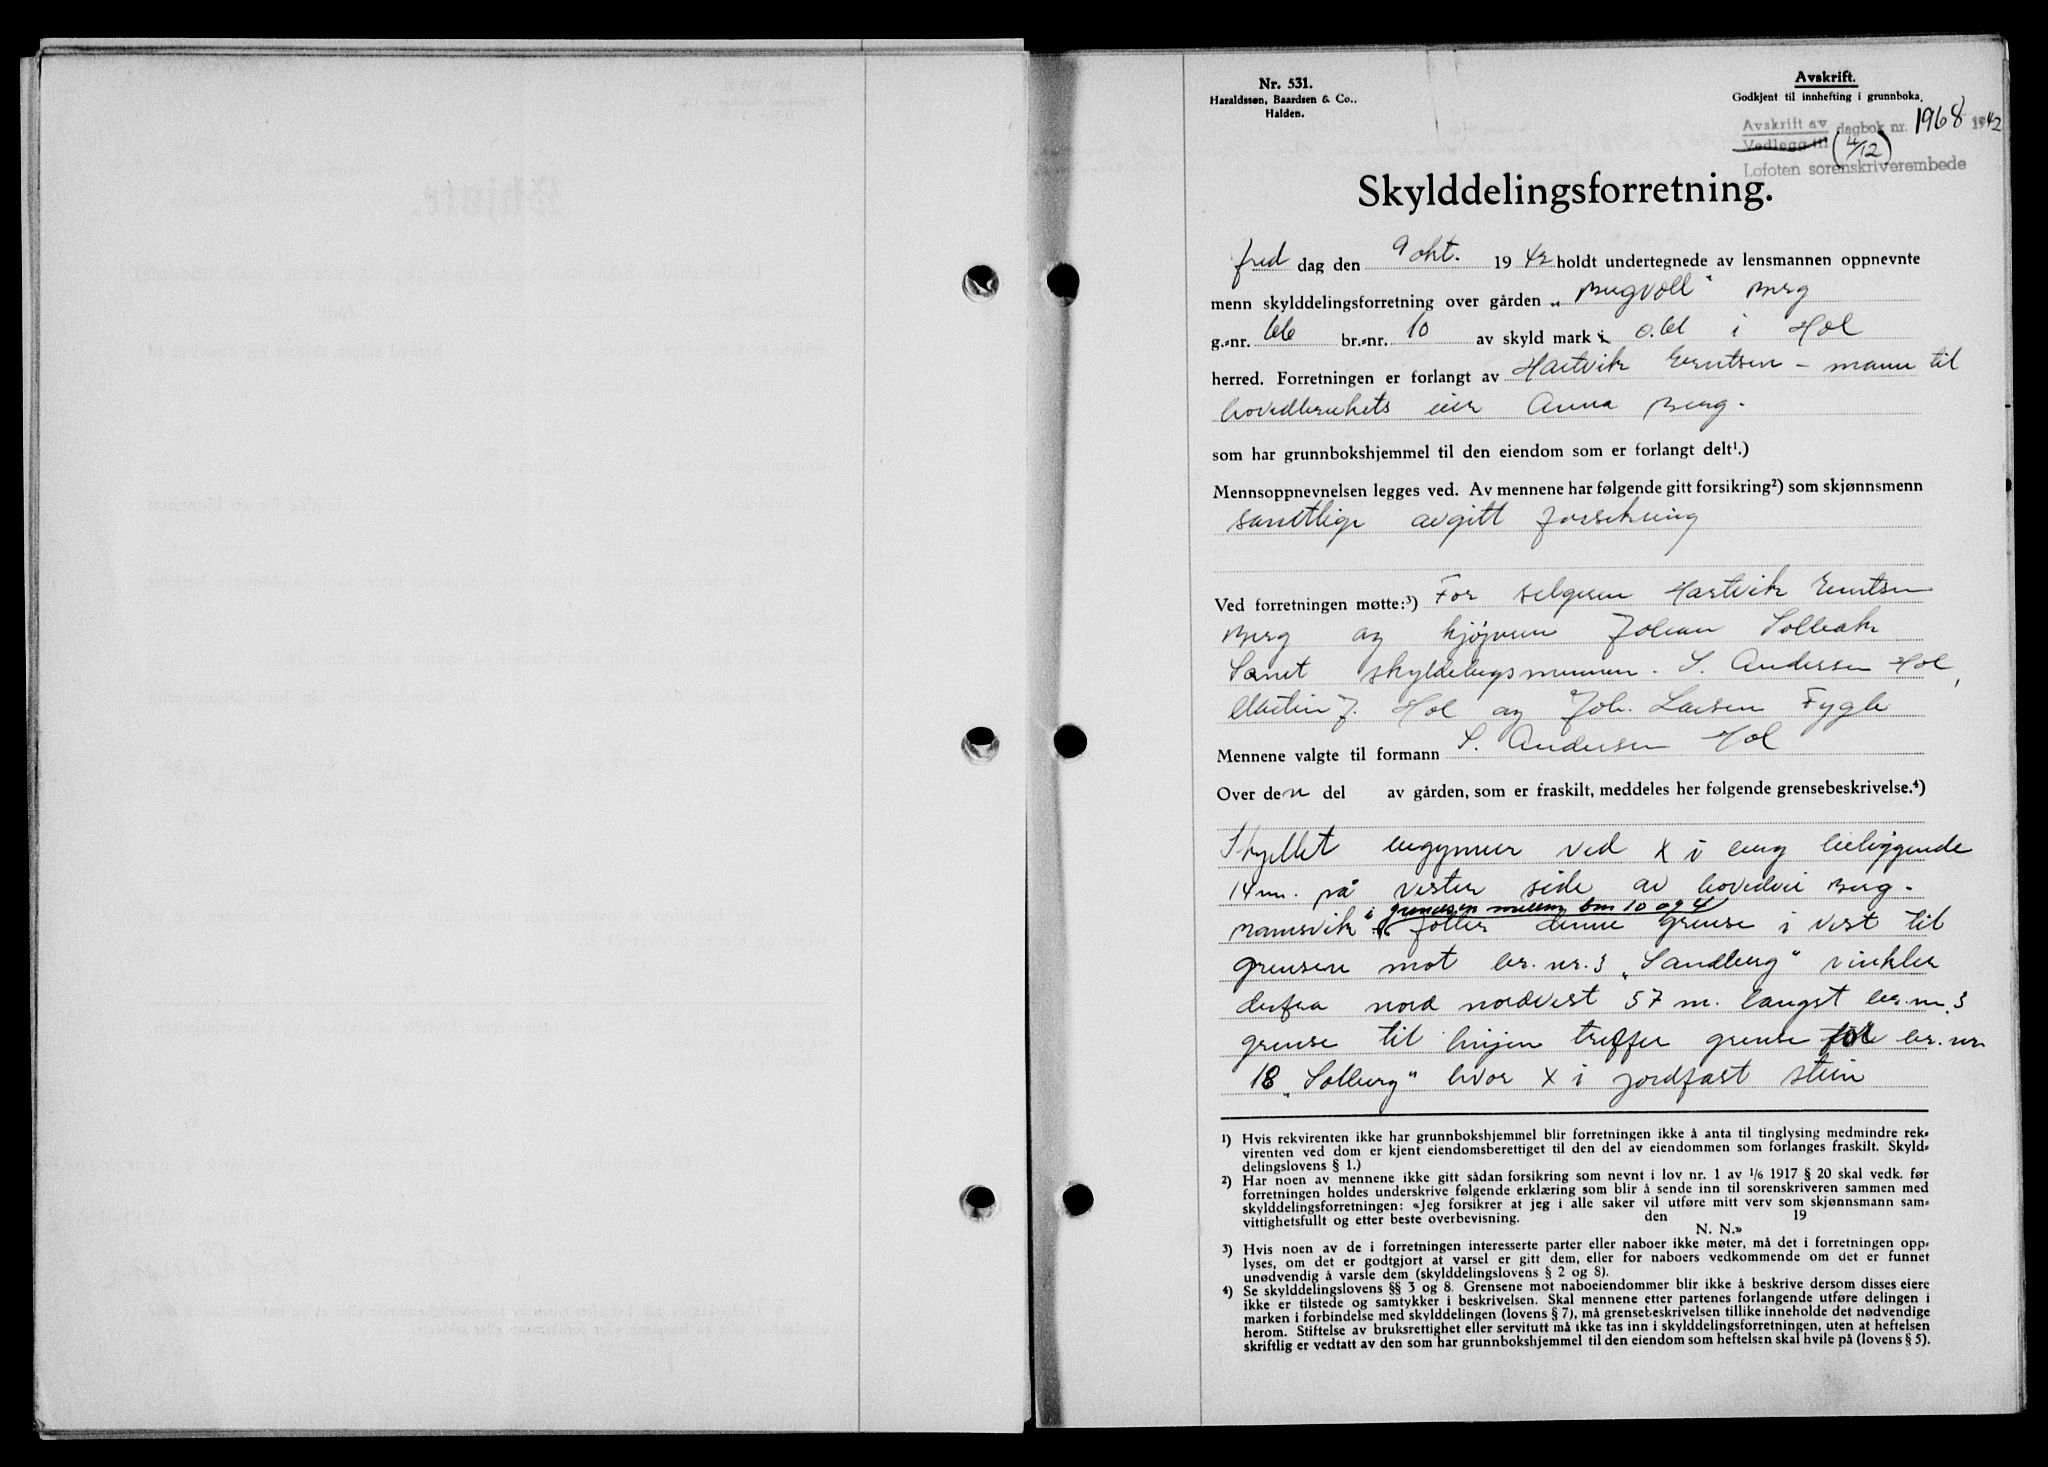 Nr. 531.
Haraldssøn, Baardsen & Co..
Halden.
Avskrift.
Godkjent til innhefting i grunnboka.
Avskrift av dagbok nr. 1968 1942
Vedlegg til (4/12)
Lofoten sorenskriverembede
Skylddelingsforretning.
fred dag den 9 okt. 19 42 holdt undertegnede av lensmannen oppnevnte
menn skylddelingsforretning over gården „Bergvoll" Berg
g.-nr. 66 br.-nr. 10 av skyld mark 0.61 i Hol
herred. Forretningen er forlangt av Hartvik Berntsen – mann til
hovedbrukets eier Anna Berg.
som har grunnbokshjemmel til den eiendom som er forlangt delt¹.)
Mennsoppnevnelsen legges ved. Av mennene har følgende gitt forsikring²) som skjønnsmenn
samtlige avgitt forsikring
Ved forretningen møtte:³) For selgeren Hartvik Berntsen
Berg og kjøperen Johan Solbak
Samt skylddelingsmennene. S. Andersen Hol,
Martin J. Hol og Joh. Larsen Fygle
Mennene valgte til formann S. Andersen Hol
Over den del av gården, som er fraskilt, meddeles her følgende grensebeskrivelse.⁴)
Skyllet begynner ved X i berg beliggende
14 m. på vester side av hovedvei Berg-
Ramsvik i grensen mellem bnr 10 og 4
følger denne grense i vest til
grensen mot br. nr. 3 „Sandberg" vinkler
derfra nord nordvest 57 m. langst br. nr. 3
grense til linjen treffer grense for br. nr.
18 „Solberg" hvor X i jordfast stein
¹) Hvis rekvirenten ikke har grunnbokshjemmel blir forretningen ikke å anta til tinglysing medmindre rek-
virenten ved dom er kjent eiendomsberettiget til den del av eiendommen som forlanges fraskilt. Skyld-
delingslovens § 1.)
²) Har noen av mennene ikke gitt sådan forsikring som nevnt i lov nr. 1 av 1/6 1917 § 20 skal vedk. før
forretningen holdes underskrive følgende erklæring som blir å sende inn til sorenskriveren sammen med
skylddelingsforretningen: «Jeg forsikrer at jeg i alle saker vil utføre mitt verv som skjønnsmann sam-
vittighetsfullt og etter beste overbevisning. den 19
N. N.»
³) Hvis noen av de i forretningen interesserte parter eller naboer ikke møter, må det i forretningen opp-
lyses, om det er godtgjort at varsel er gitt dem, eller for naboers vedkommende om det er funnet
unødvendig å varsle dem (skylddelingslovens § 2 og 8).
⁴) Se skylddelingslovens §§ 3 og 8. Grensene mot naboeiendommer blir ikke å beskrive dersom disses eiere
ikke er tilstede og samtykker i beskrivelsen. Skal mennene etter partenes forlangende utføre delingen i
marken i forbindelse med skylddelingen (lovens § 7), må grensebeskrivelsen tillike inneholde det nødvendige
herom. Stiftelse av bruksrettighet eller servitutt må ikke tas inn i skylddelingsforretningen, uten at heftelsen
skriftlig er vedtatt av den som har grunnbokshjemmel til den eiendom som heftelsen skal hvile på (lovens § 5).